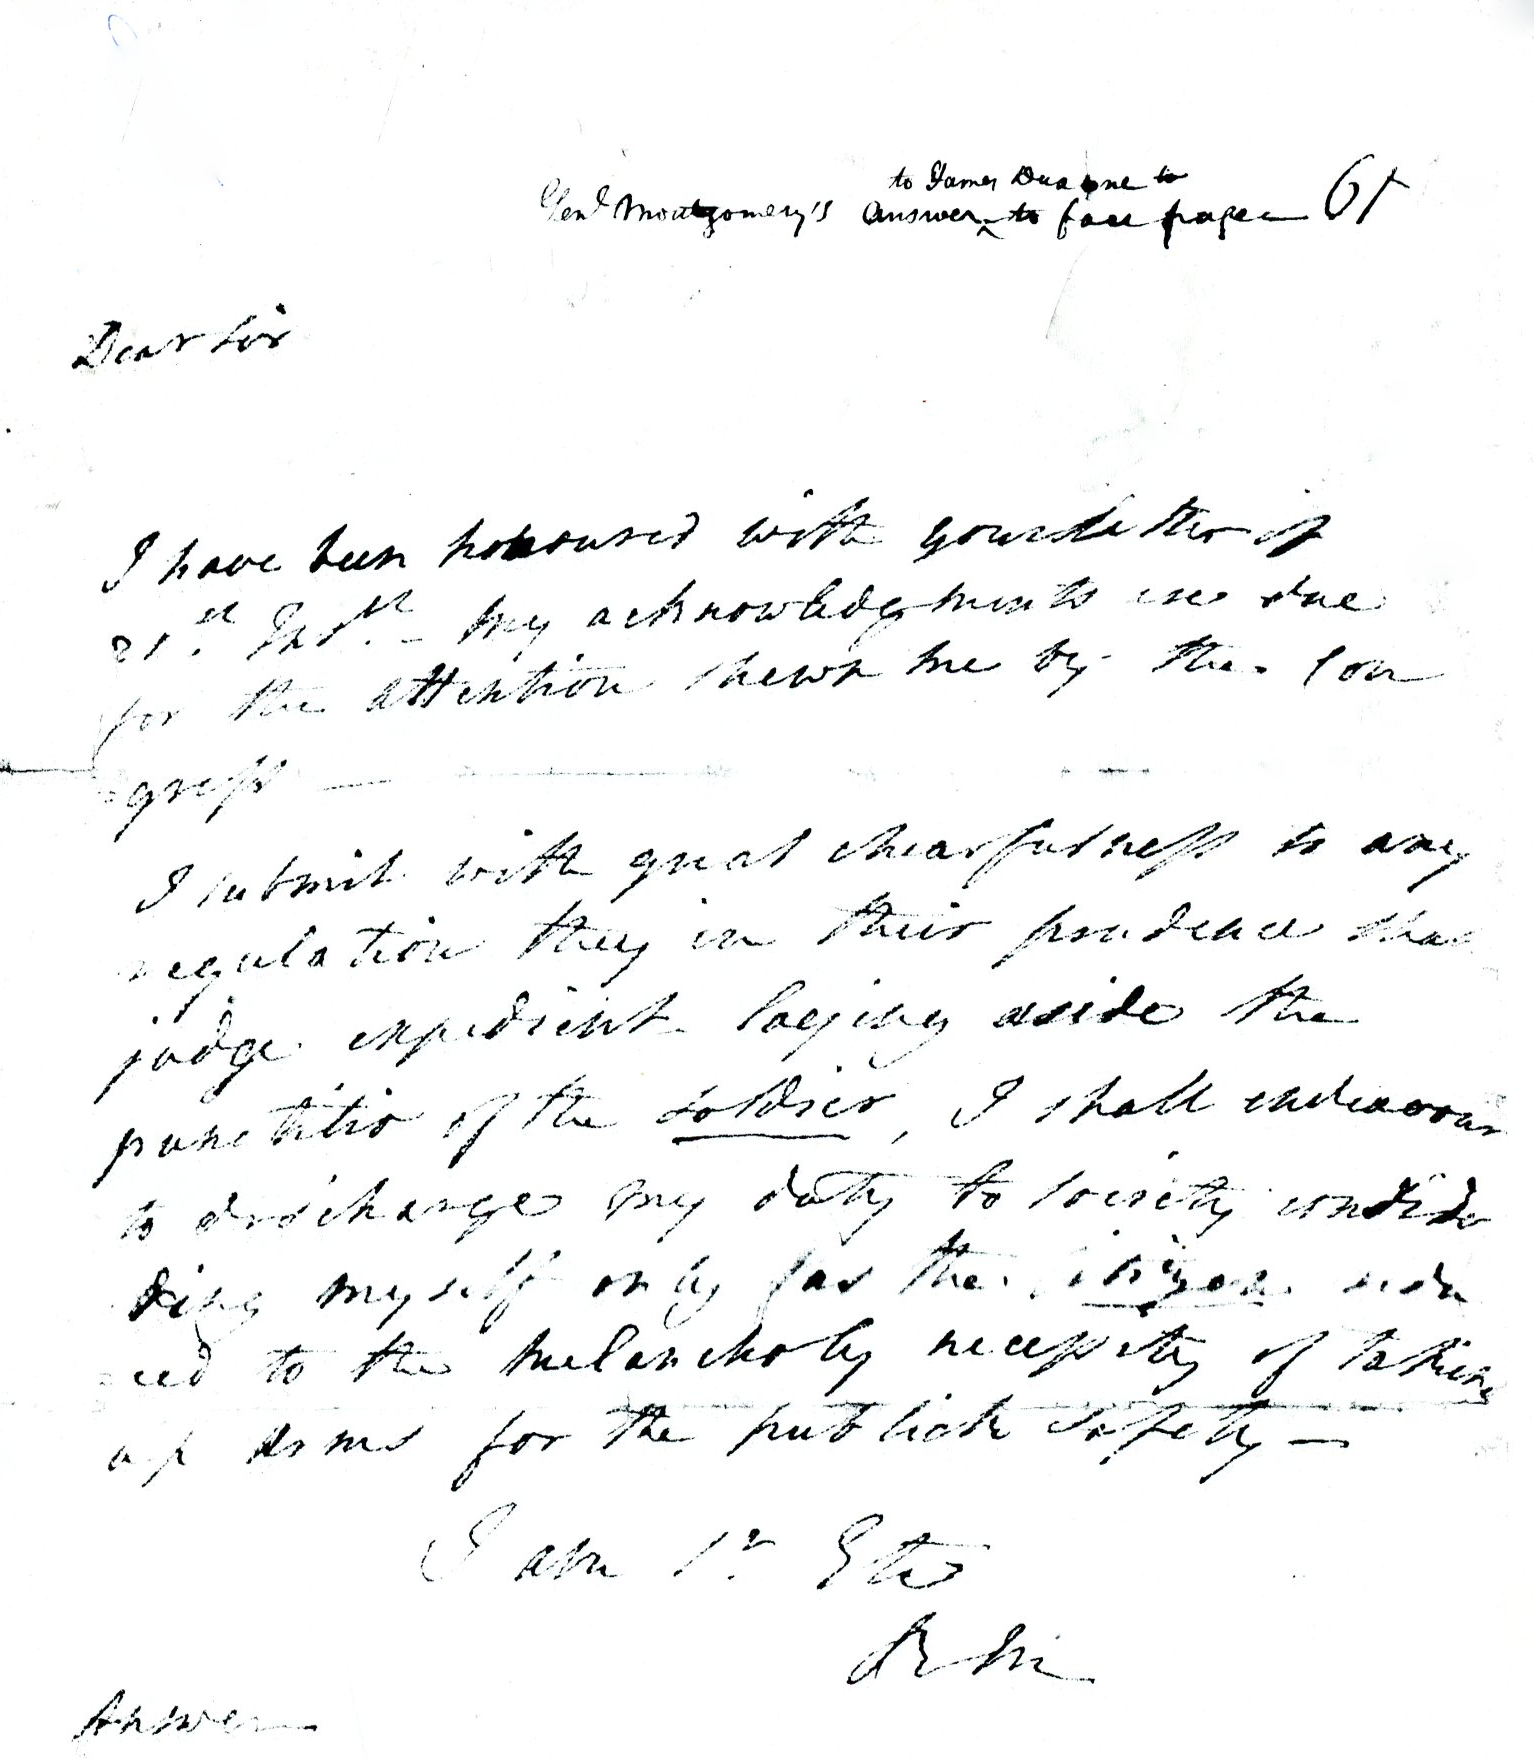 to James Duane to
Genl Montgomery's Answer ^ to face page 61
Dear Sir
I have been honoured with your letter of
21.st Inst. - My acknowledgments are due
for the attention shewn me by the Con
gress —
I submit with great chearfulness to any
regulation they in their prudence shall
judge expedient laying aside the
punctilio of the soldier, I shall endeavour
to discharge my duty to society conside
ring myself only as the citizen redu
ced to the melancholy necessity of taking
up arms for the publick safety —
I am Sr Etc
R M
Answer